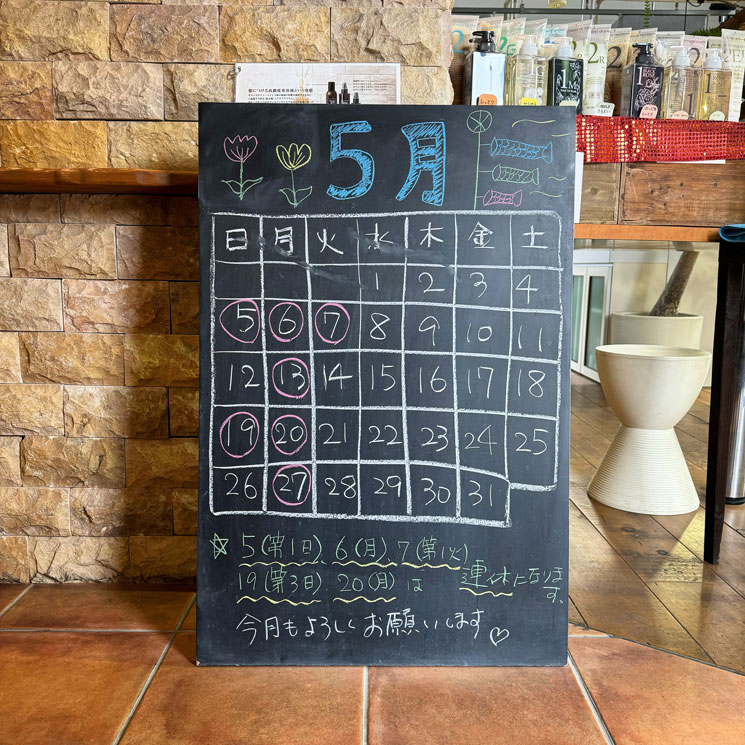 髪につける高濃度美容液という発想
5月
日 月 火 水 木 金 土
1 2 3 4
5 6 7 8 9 10 11
12 13 14 15 16 17 18
19 20 21 22 23 24 25
26 27 28 29 30 31
☆ 5(第1日)、6(月)、7(第1火)
19(第3日) 20(月)は 連休になります。
今月もよろしくお願いします♡